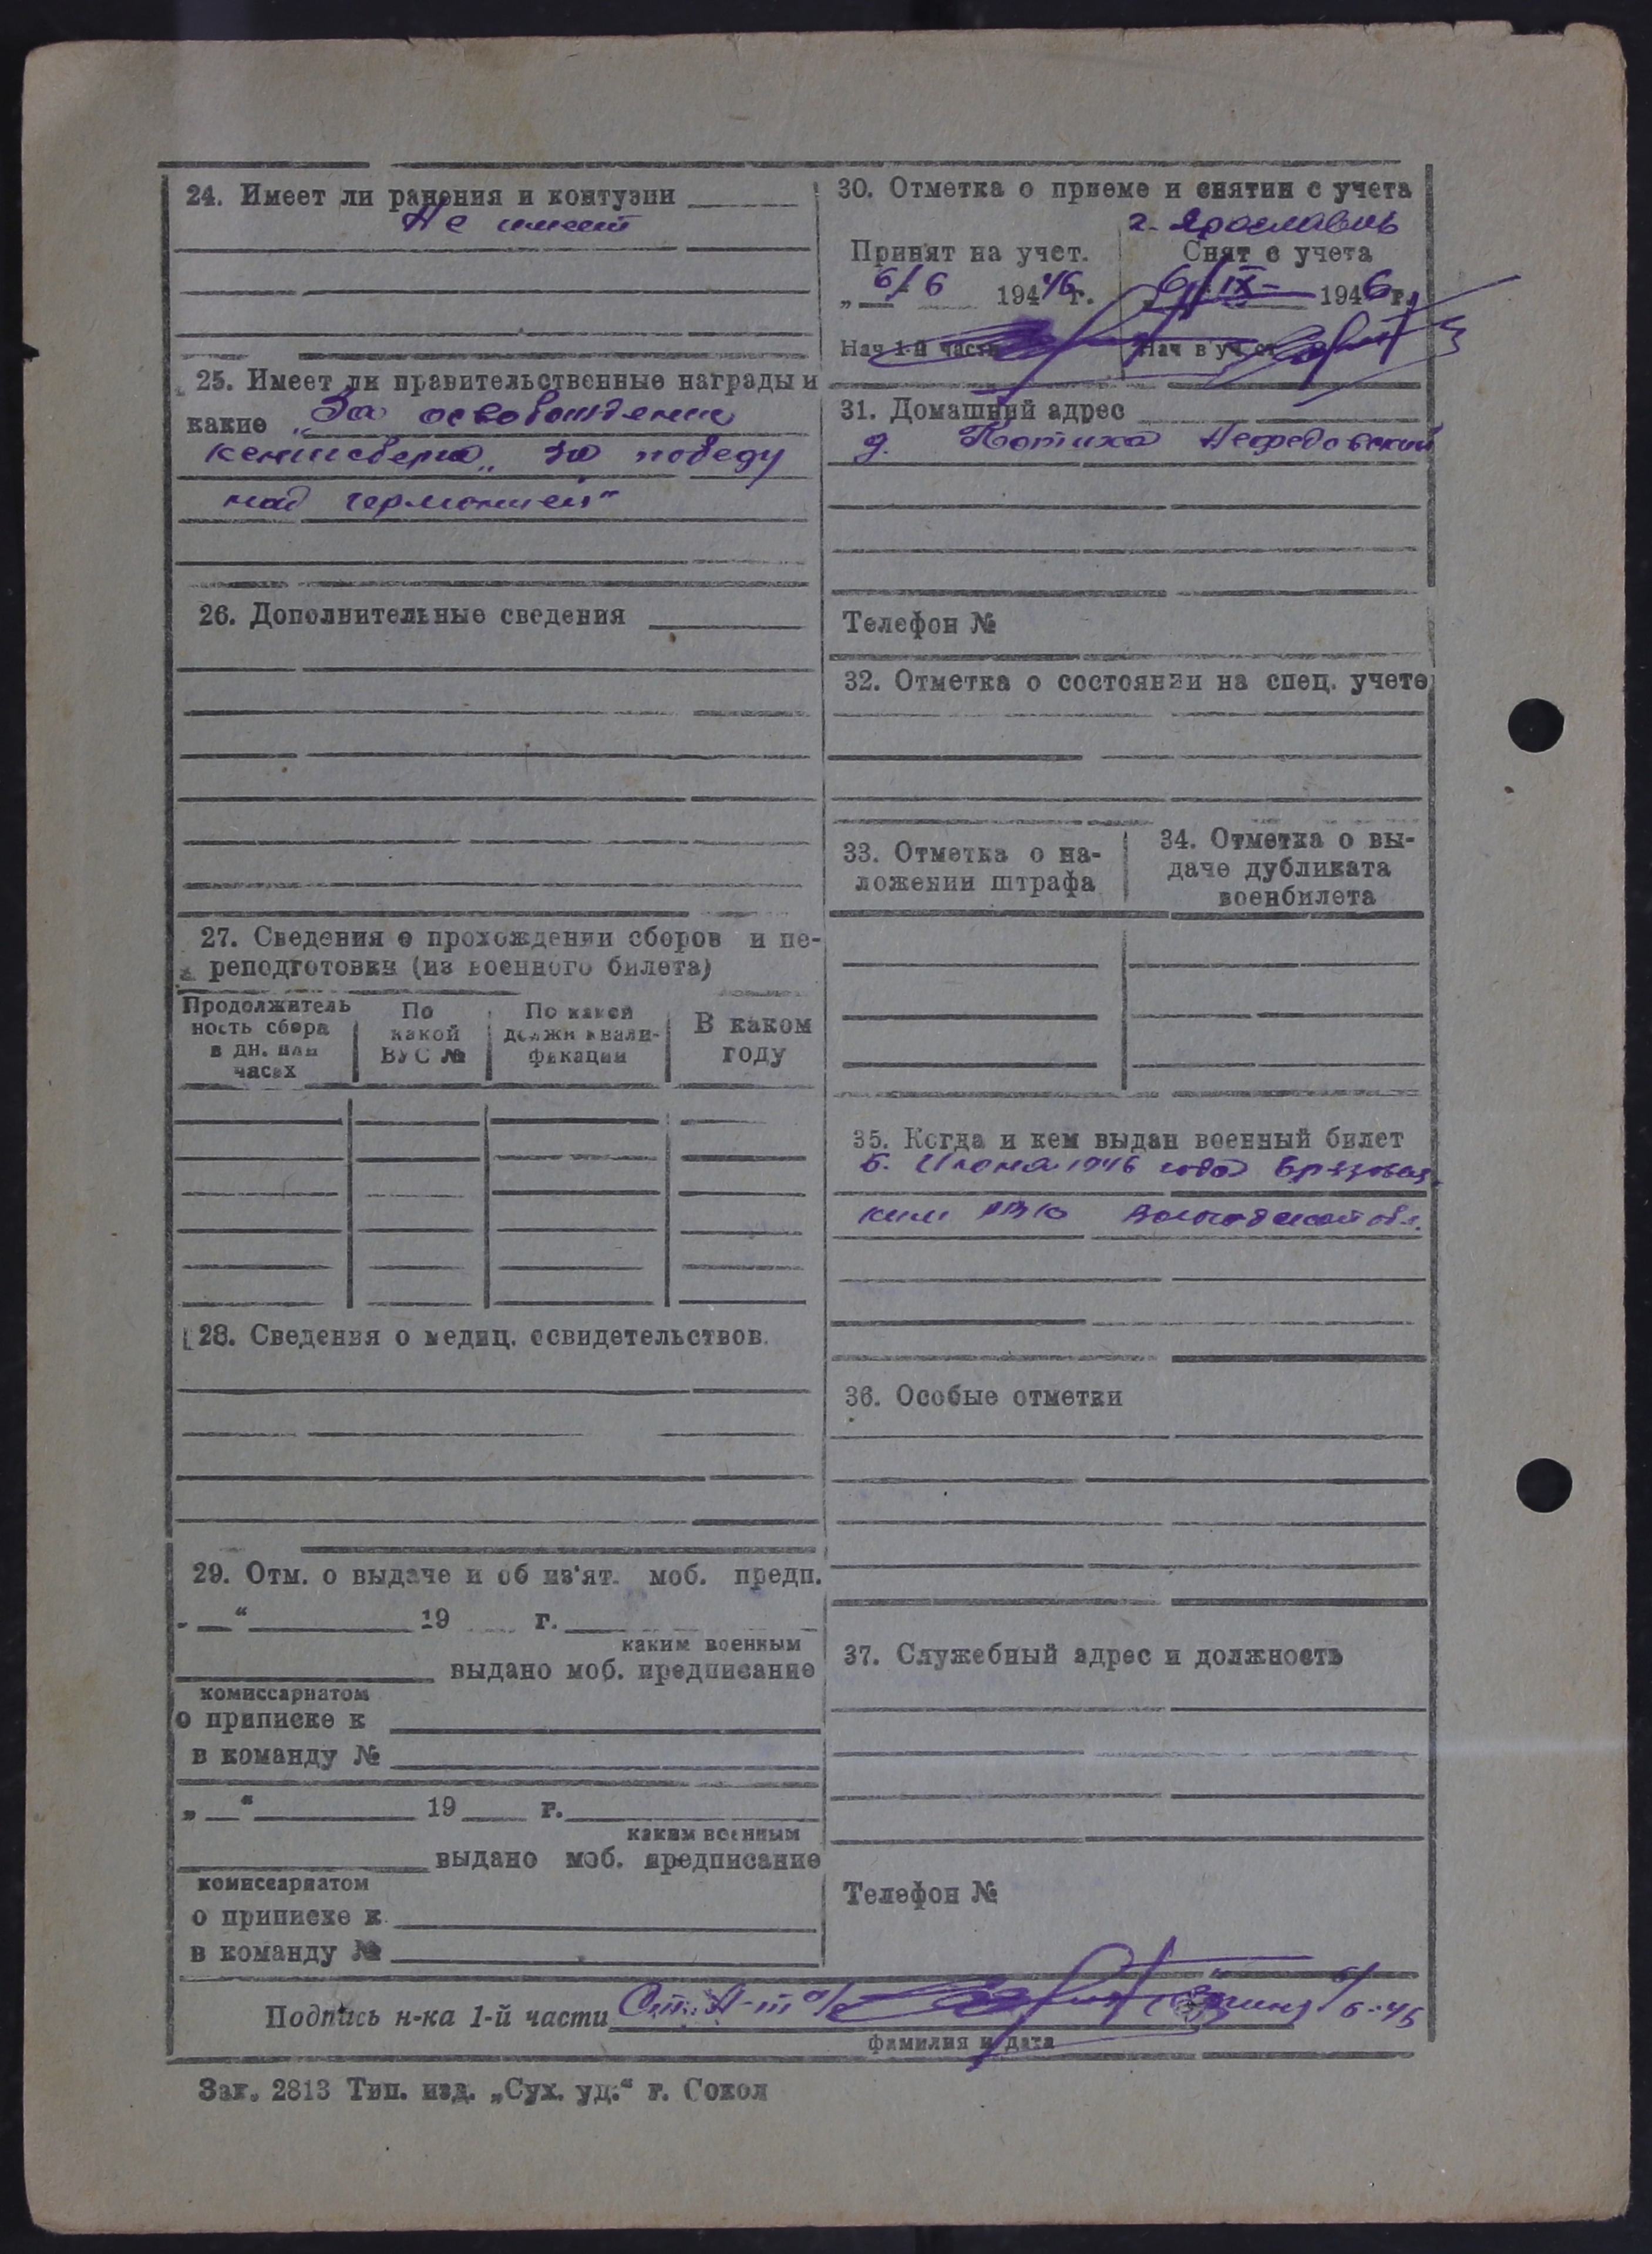 24. Имеет ли ранения и контузии
Не имеет
25. Имеет ли правительственные награды и
какие „За освобождение
кенисберга„ за победу
над германией"
26. Дополнительные сведения
27. Сведения о прохождении сборов и пе-
реподготовки (из военного билета)
Продолжитель
ность сбора
в дн. или
часах
По
какой
ВУС №
По какой
должн квали-
фикации
В каком
году
28. Сведения о медиц. освидетельствов.
29. Отм. о выдаче и об из'ят. моб. предп.
„ — “ 19 г.
каким военным
выдано моб. предписание
комиссариатом
о приписке к
в команду №
„ — “ 19 г.
каким военным
выдано моб. предписание
комиссариатом
о приписке к
в команду №
30. Отметка о приеме и снятии с учета
г. Ярославль
Принят на учет.
Снят с учета
„ 6/6 1946 г.
6/IX- 1946 г.
Нач 1-й части
Нач в уч ст
31. Домашний адрес
д. Потиха Нефедовский
Телефон №
32. Отметка о состоянии на спец. учете
33. Отметка о на-
ложении штрафа
34. Отметка о вы-
даче дубликата
военбилета
35. Когда и кем выдан военный билет
6. Июня 1946 года
ким РВК Вологодской обл.
36. Особые отметки
37. Служебный адрес и должность
Телефон №
Подпись н-ка 1-й части Ст. Л-т а/с 6/6-46
фамилия и дата
Зак. 2813 Тип. изд. „Сух. уд.“ г. Сокол